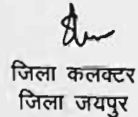 जिला कलक्टर
जिला जयपुर